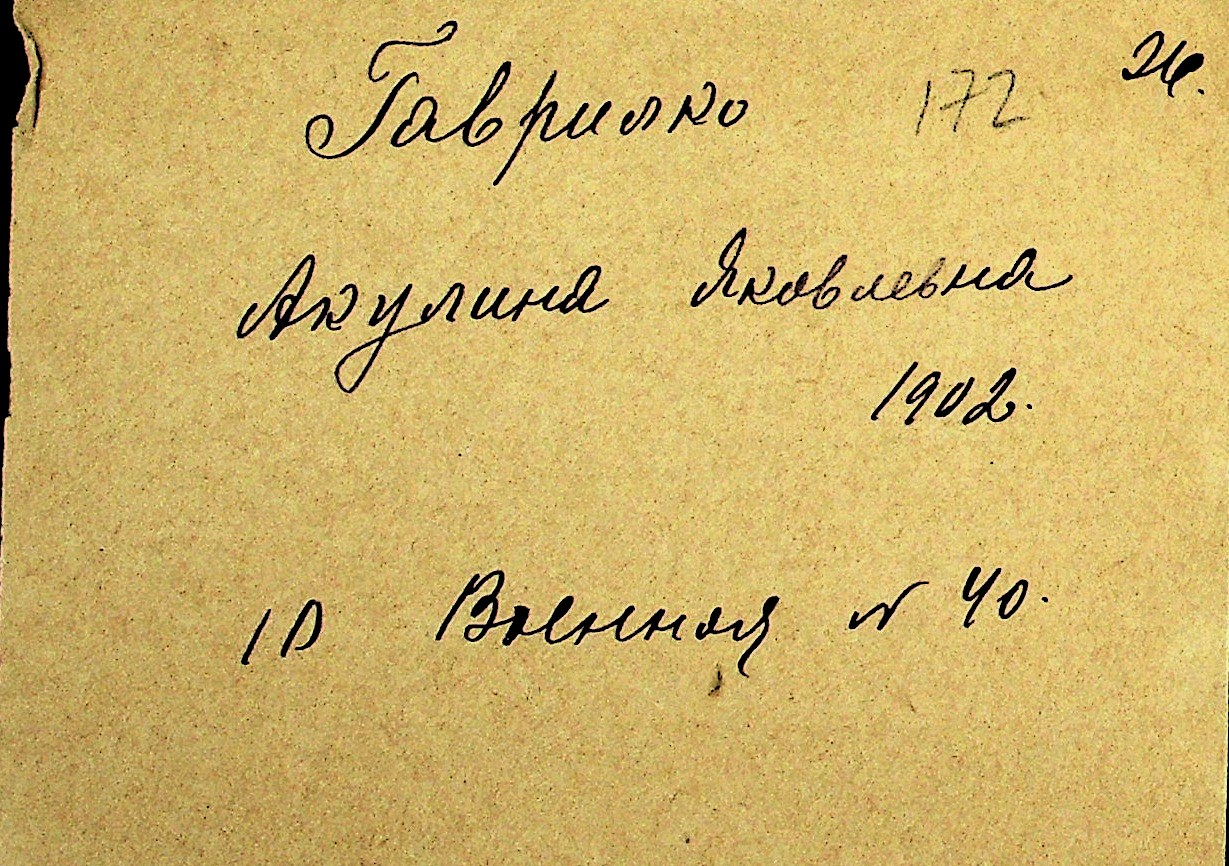 Гаврилко 172 Ж.
Акулина Яковлевна
1902.
10 Военная № 40.